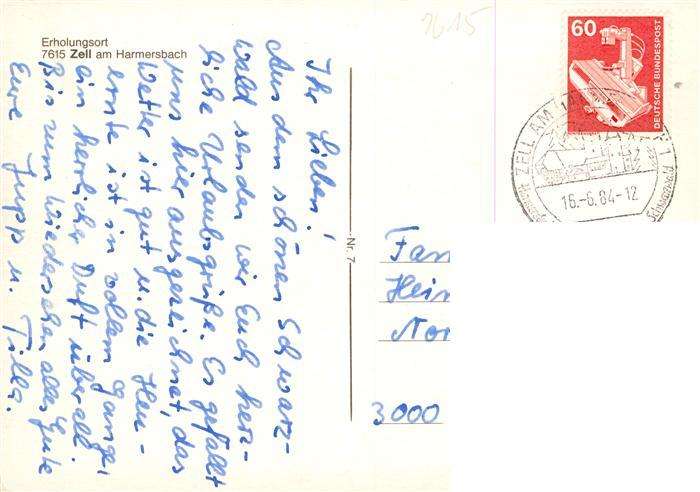 Erholungsort
7615 Zell am Harmersbach
7615
Ihr Lieben!
Aus dem schönen Schwarz-
wald senden wir Euch herz-
liche Urlaubsgrüße. Es gefällt
uns hier ausgezeichnet, das
Wetter ist gut u. die Heu-
ernte ist in vollem Gange,
ein herrlicher Duft überall.
Bis zum Wiedersehen alles Gute
Eure Jupp u. Tilla.
Nr. 7
60
DEUTSCHE BUNDESPOST
ZELL AM
16.-6.84-12
Fam
Hein
Nor
3000